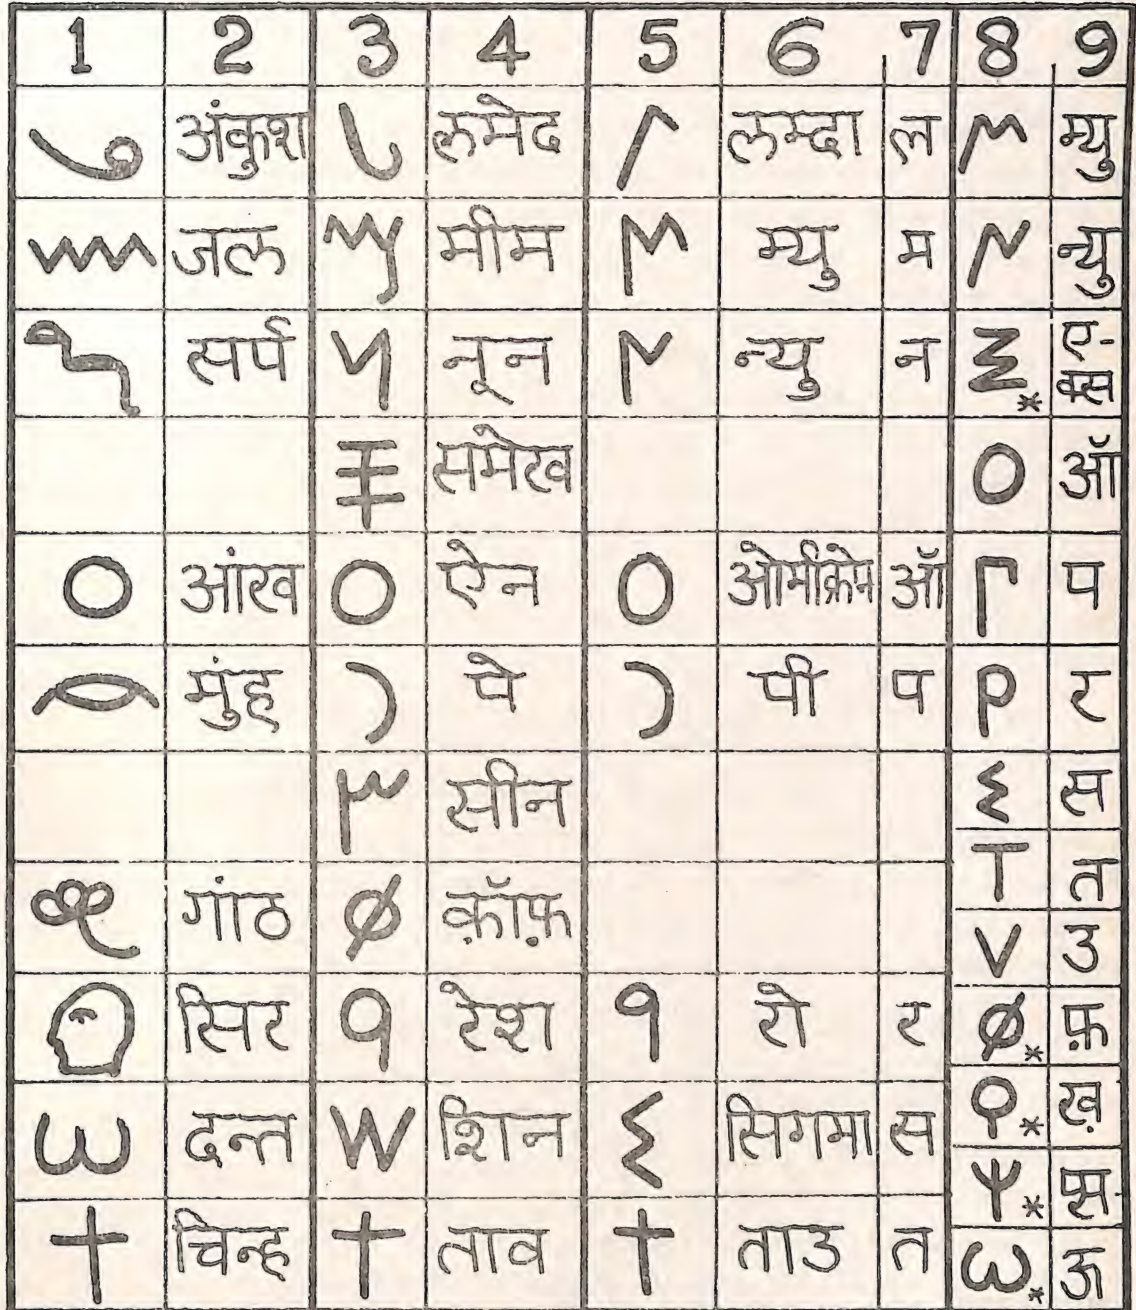 1 2 3 4 5 6 7 8 9
अंकुश लमेद लम्दा ल म्यु
जल मीम म्यु म न्यु
सर्प नून न्यु न ए-
क्स
समेख ऑ
आंख O ऐन O ओमीक्रोन ऑ प
मुंह पे पी प P र
सीन स
T त
गांठ क़ॉफ़ V उ
सिर रेश रो र फ़
दन्त W शिन सिगमा स ख़
प्स
चिन्ह ताव ताउ त ऊ